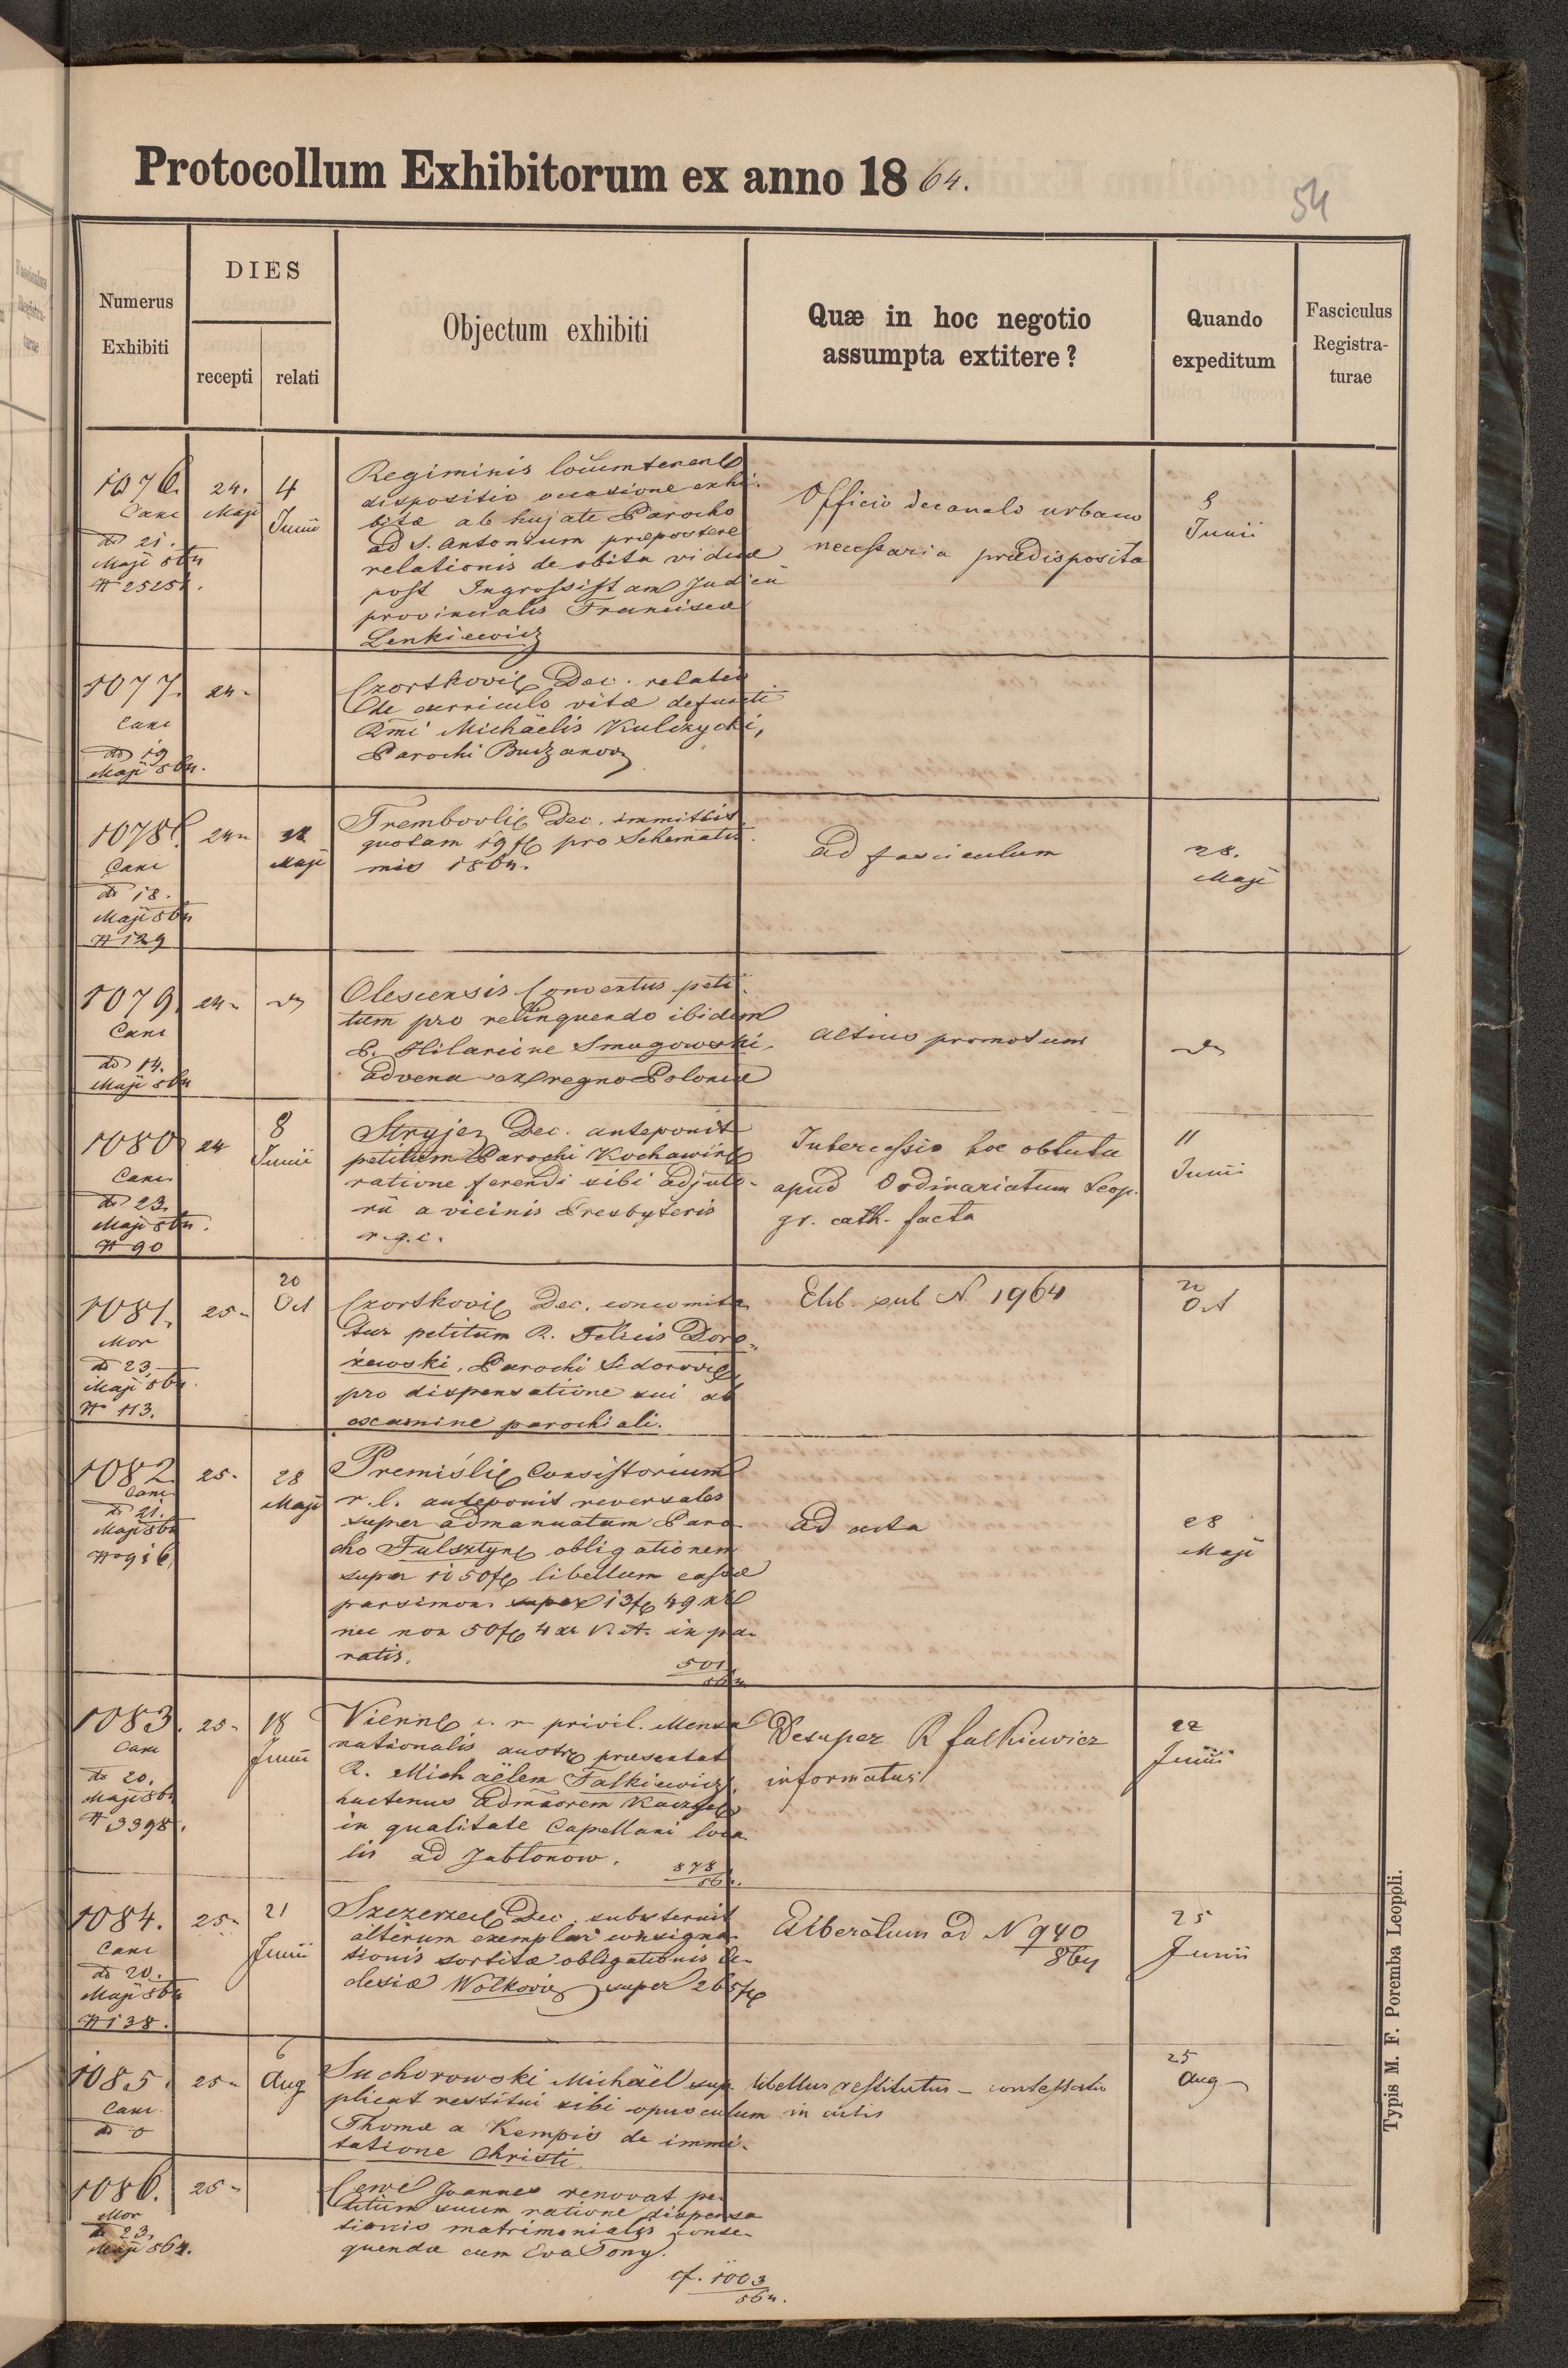 Protocollum Exhibitorum ex anno 1864.
54
Numerus Exhibiti
DIES
recepti
relati
Objectum exhibiti
Quæ in hoc negotio assumpta extitere?
Quando expeditum
Fasciculus Registra-turae
1076.
Canc
do 21.
Maji 864
N 25251.
24.
Maji
4
Junii
Regiminis locumtenent
dispositio occasione exhi-
bitæ ab hujate Parocho
ad S. Antonium præpostere
relationis de obitu viduæ
post Ingrossistam Judicii
provincialis Franciscæ
Lenkiewicz
Officio decanali urbano
necessaria prædisposita
8
Junii
1077.
Canc
do 19
Maji 864.
24-
Czortkovi Dec. relatio
de curriculo vitæ defuncti
Rmi Michaëlis Kulczycki,
Parochi Budzanov
1078.
Canc
do 18.
Maji 864
N 129
24-
Maji
Trembovli Dec. immittit
quotam 19 f pro Schematis-
mis 1864.
Ad fasciculum
28.
Maji
1079.
Canc
do 14.
Maji 864
24-
Olescensis Conventus peti-
tum pro relinquendo ibidem
P. Hilarione Smugowski,
advena ex regno Poloniæ
altius promotum
1080
Canc
do 23.
Maji 864.
N 90
24
8
Junii
Stryjen Dec. anteponit
petitum Parochi Kochawin
ratione ferendi sibi adjuto-
rii a vicinis Presbyteris
r.g.c.
Intercessio hoc obtutu
apud Ordinariatum Leop.
gr. cath. facta
11
Junii
1081.
Mor
do 23.
Maji 864.
N 113.
25-
20
Oct
Czortkovi Dec. concomita-
tur petitum R. Felicis Dore-
żewski, Parochi Sidorovi
pro dispensatione sui ab
examine parochiali.
Elib. sub N 1964
20
Oct
1082.
Canc
do 21.
Maji 864
N 916.
25-
28
Maji
Premisli Consistorium
r.l. anteponit reversales
super admanuatam Paro-
cho Fulsztyn obligationem
super 1050 f libellum cassæ
parsimon. super 13 f 49 xr
nec non 50 f 4 xr V.A. in pa-
ratis.
501
864
ad acta
28
Maji
1083.
Canc
do 20.
Maji 864
N 3398.
25-
18
Junii
Vienn c. r. privil. Mensa
nationalis austr præsentat
R. Michaëlem Falkiewicz,
hactenus Admāorem
in qualitate Capellani loca-
lis ad Jabłonow.
878
864.
Desuper R Falkiewicz
informatus
22
Junii
1084.
Canc
do 20.
Maji 864
N 138.
25-
21
Junii
Szczerzec Dec. substernit
alterum exemplar consigna-
tionis sortitæ obligationis Ec-
clesiæ Wolkovi super 265 f
Eliberatum ad N 940
864
25
Junii
1085.
Canc.
do 0
25-
6
Aug
Suchorowski Michaël sup-
plicat restitui sibi opusculum
Thomæ a Kempis de immi-
tatione Christi.
libellus restitutus - contestatio
in actis
25
Aug
1086.
Mor
do 23.
Maji 864.
25-
Joannes renovat pe-
titum suum ratione dispensa-
tionis matrimonialis conse-
quendæ cum Eva Tony.
cf. 1003
864.
Typis M. F. Poremba Leopoli.